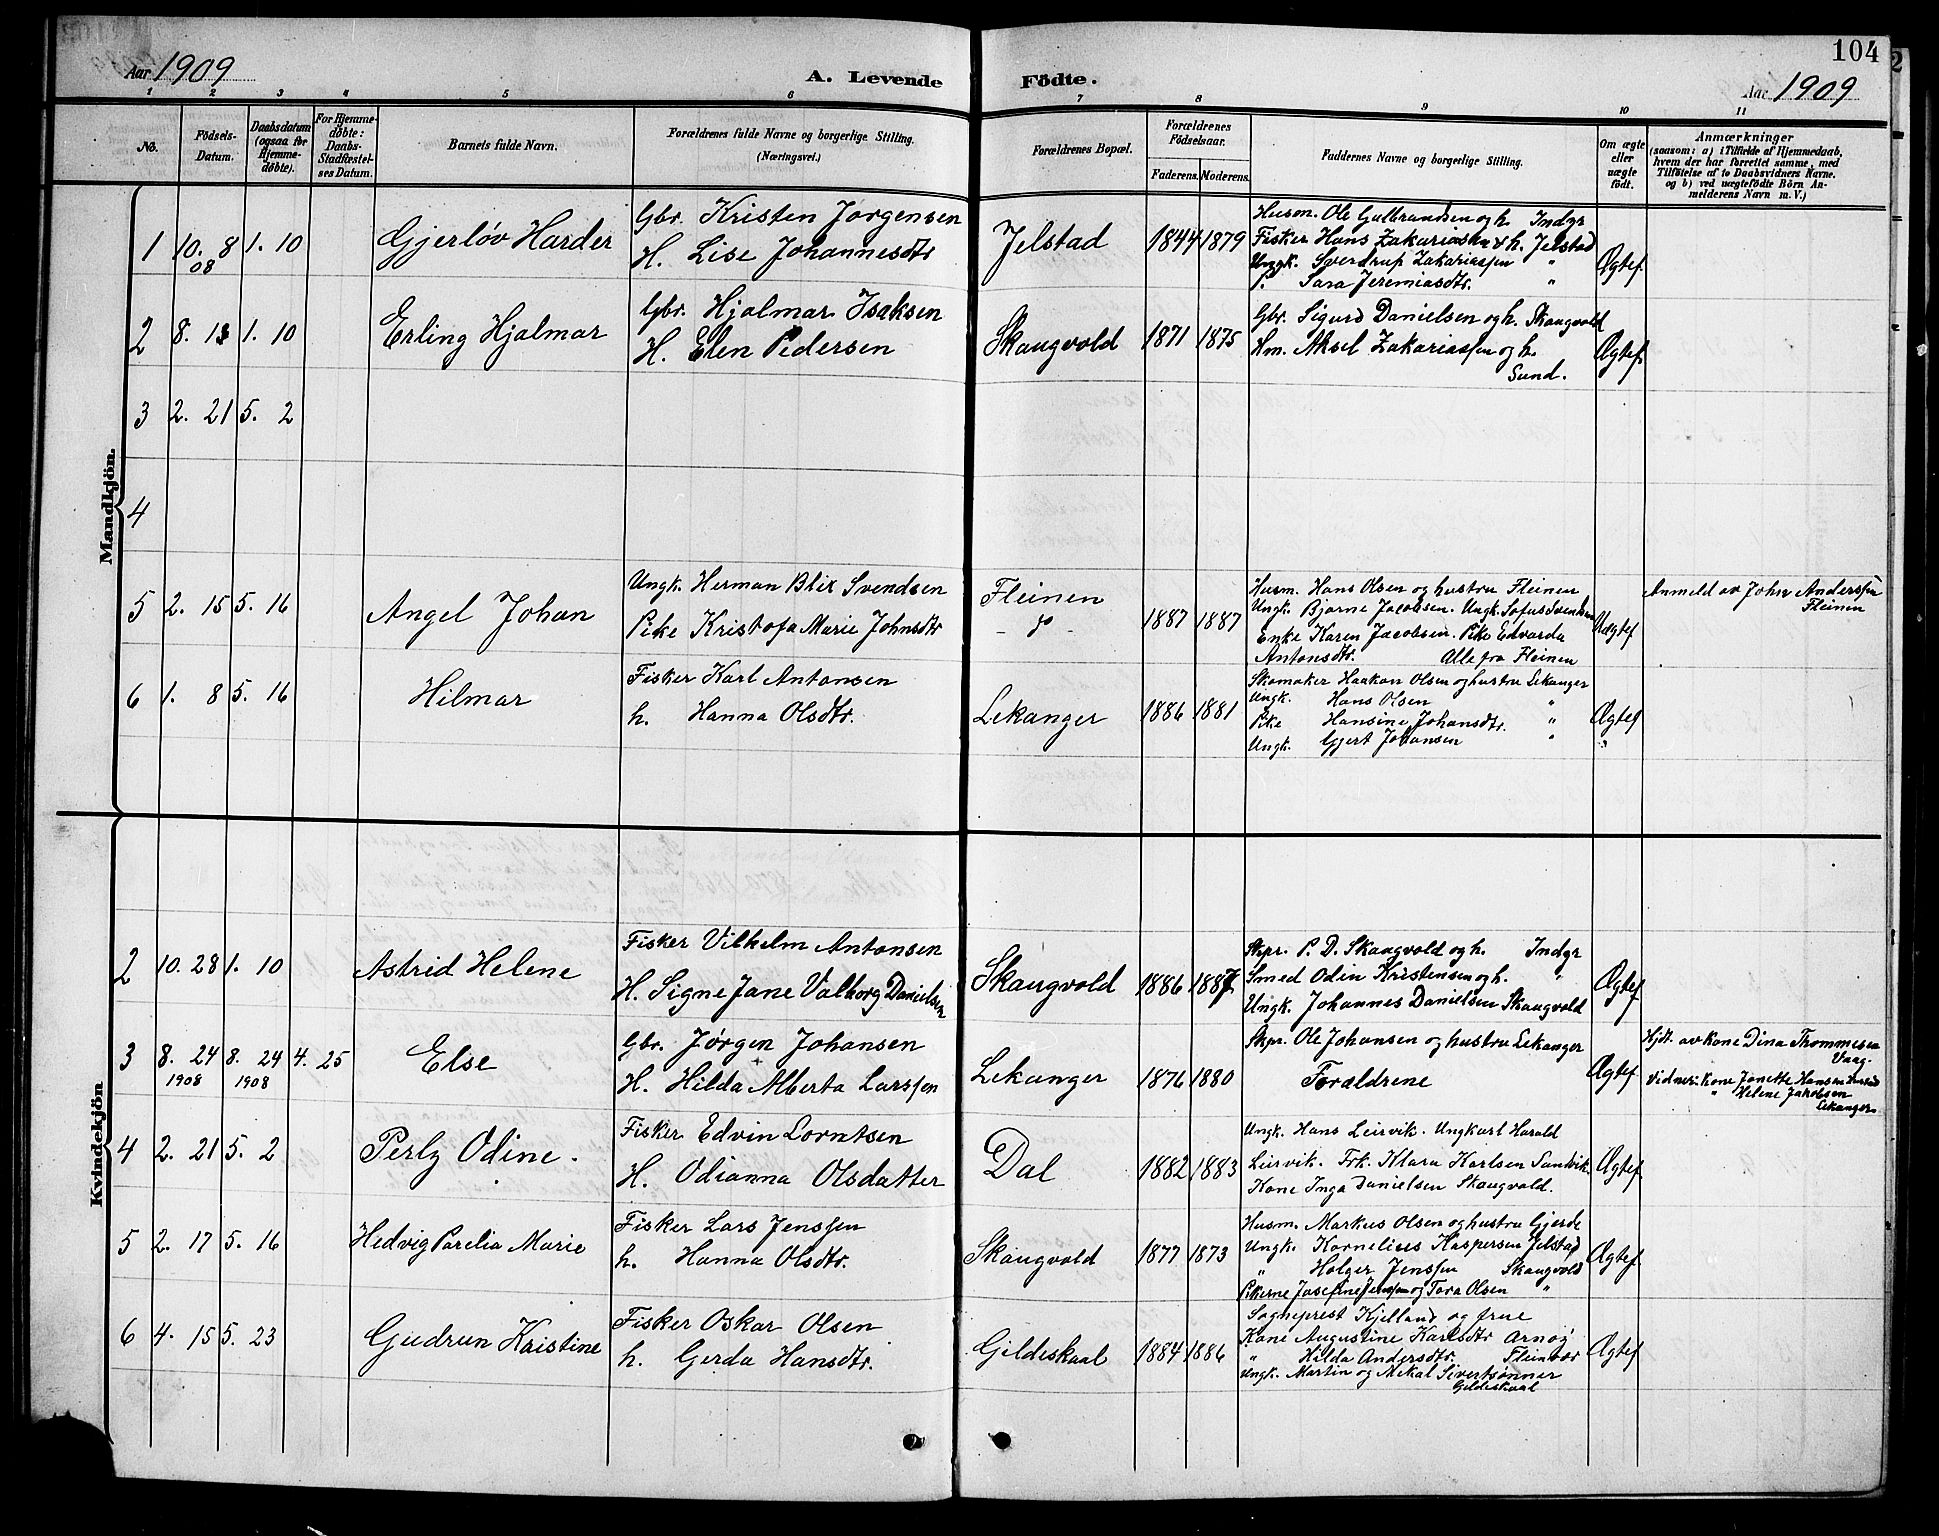 104
Aar 1909
A. Levende Födte.
Aar 1909
1 2 3 4 5 6 7 8 9 10 11
No.
Födsels-Datum.
Daabsdatum (ogsaa for Hjemmedöbte).
For Hjemmedöbte: Daabs-Stadfæstelses Datum.
Barnets fulde Navn.
Forældrenes fulde Navne og borgerlige Stilling. (Næringsvei.)
Forældrenes Bopæl.
Forældrenes Födselsaar.
Faderens. Moderens.
Faddernes Navne og borgerlige Stilling.
Om ægte eller uægte födt.
Anmærkninger
(saasom: a) i Tilfælde af Hjemmedaab, hvem der har forrettet samme, med Tilföielse af to Daabsvidners Navne. og b) ved uægtefödte Börn Anmelderens Navn m. V.)
Mandkjön.
1 10. 8 1. 10 Gjerløv Harder Gbr. Kristen Jørgensen Jelstad 1844 1879 Husm. Ole Gulbrandsen og h. Indgr
08 H. Lise Johannesdtr Fisker Hans Zakariassen & h. Jelstad
Ungk. Sverdrup Zakariassen " Ægtef
P. Sara Jeremiasdtr. "
2 8. 13 1. 10 Erling Hjalmar Gbr. Hjalmar Isaksen Skaugvold 1871 1875 Gbr. Sigurd Danielsen og h. Skaugvold
H. Elen Pedersen Hm. Aksel Zakariassen og h. Ægtef
Sund.
3 2. 21 5. 2
4
5 2. 15 5. 16 Angel Johan Ungk. Herman Blix Svendsen Fleinen 1887 1887 Husm. Hans Olsen og hustru Fleinen Anmeld av John Anderssen
Pike Kristofa Marie Johnsdtr Ungk. Bjarne Jacobsen. Ungk. Sofus Svendsen Uægtef Fleinen
Enke Karen Jacobsen. Pike Edvarda
Antonsdtr. Alle fra Fleinen
6 1. 8 5. 16 Hilmar Fisker Karl Antonsen Lekanger 1886 1881 Skomaker Haakon Olsen og hustru Lekanger
h. Hanna Olsdtr. Ungk. Hans Olsen "
Pike Hansine Johansdtr. " Ægtef
Ungk. Gjert Johansen "
Kvindekjön
2 10. 28 1. 10 Astrid Helene Fisker Vilhelm Antonsen Skaugvold 1886 1887 Skpr. P. D. Skaugvold og h. Indgr
H. Signe Jane Valborg Danielsen Smed Odin Kristensen og h. " Ægtef
Ungk. Johannes Danielsen Skaugvold
3 8. 24 8. 24 4. 25 Else Gbr. Jørgen Johansen Lekanger 1876 1880 Skpr. Ole Johansen og hustru Lekanger Ægtef Hjdt. av Kone Dina Thommesen
1908 1908 H. Hilda Alberta Larssen Forældrene Vaag.
Vidner: Kone Janette Hansen
" Helene Jakobsen
Lekanger
4 2. 21 5. 2 Perly Odine. Fisker Edvin Lorntsen Dal 1882 1883 Ungk. Hans Leirvik. Ungkarl Harald
H. Odianna Olsdatter Leirvik. Frk. Klara Karlsen Sandvik. Ægtef
Kone Inga Danielsen Skaugvold.
5 2. 17 5. 16 Hedvig Parelia Marie Fisker Lars Jenssen Skaugvold 1877 1873 Husm. Markus Olsen og hustru Gjerde
h. Hanna Olsdtr. Ungk. Kornelius Kaspersen Jelstad Ægtef
" Holger Jenssen Skaugvold
Pikerne Josefine Jenssen og Tora Olsen "
6 4. 15 5. 23 Gudrun Kristine Fisker Oskar Olsen Gildeskaal 1884 1886 Sogneprest Kjelland og frue
h. Gerda Hansdtr. Kone Augustine Karlsdtr Arnøy Ægtef
" Hilda Andersdtr. Fleinvær
Ungk. Martin og Mekal Sivertsønner
Gildeskaal